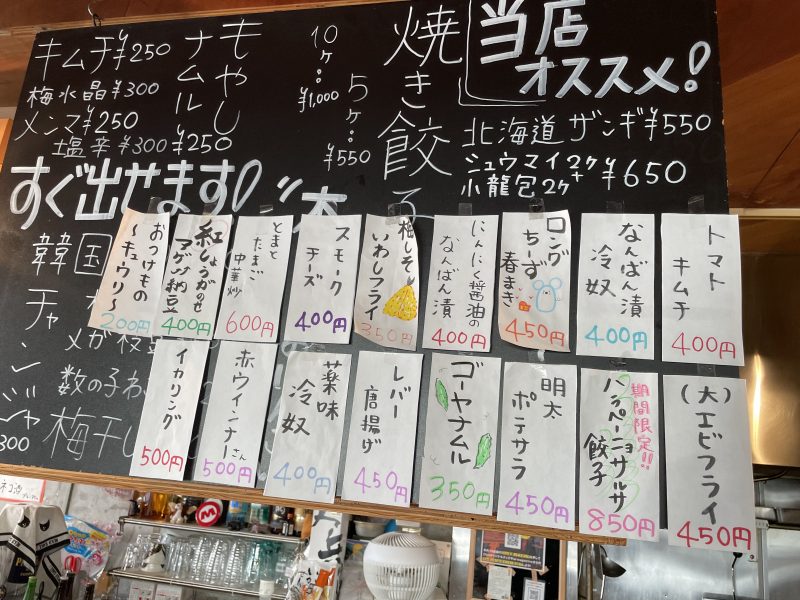 当店
オススメ!
北海道ザンギ¥550
シュウマイ2ケ
+
小龍包2ケ
¥650
焼き餃子
5ケ:
¥550
10ケ:
¥1,000
もやし
ナムル
¥250
キムチ¥250
梅水晶¥300
メンマ¥250
塩辛¥300
すぐ出せます!
韓国
チャンジャ
メガ枝豆
数の子わ
梅干し
300
トマト
キムチ
400円
なんばん漬
冷奴
400円
ロング
ちーず
春まき
450円
にんにく醤油の
なんばん漬
400円
梅しそ
いわしフライ
350円
スモーク
チーズ
400円
とまと
たまご
中華炒
600円
紅しょうがのせ
アゲの納豆
400円
おつけもの
~キュウリ~
200円
(大)エビフライ
450円
期間限定!!
ハラペーニョサルサ
餃子
850円
明太
ポテサラ
450円
ゴーヤナムル
350円
レバー
唐揚げ
450円
薬味
冷奴
400円
赤ウインナーさん
500円
イカリング
500円